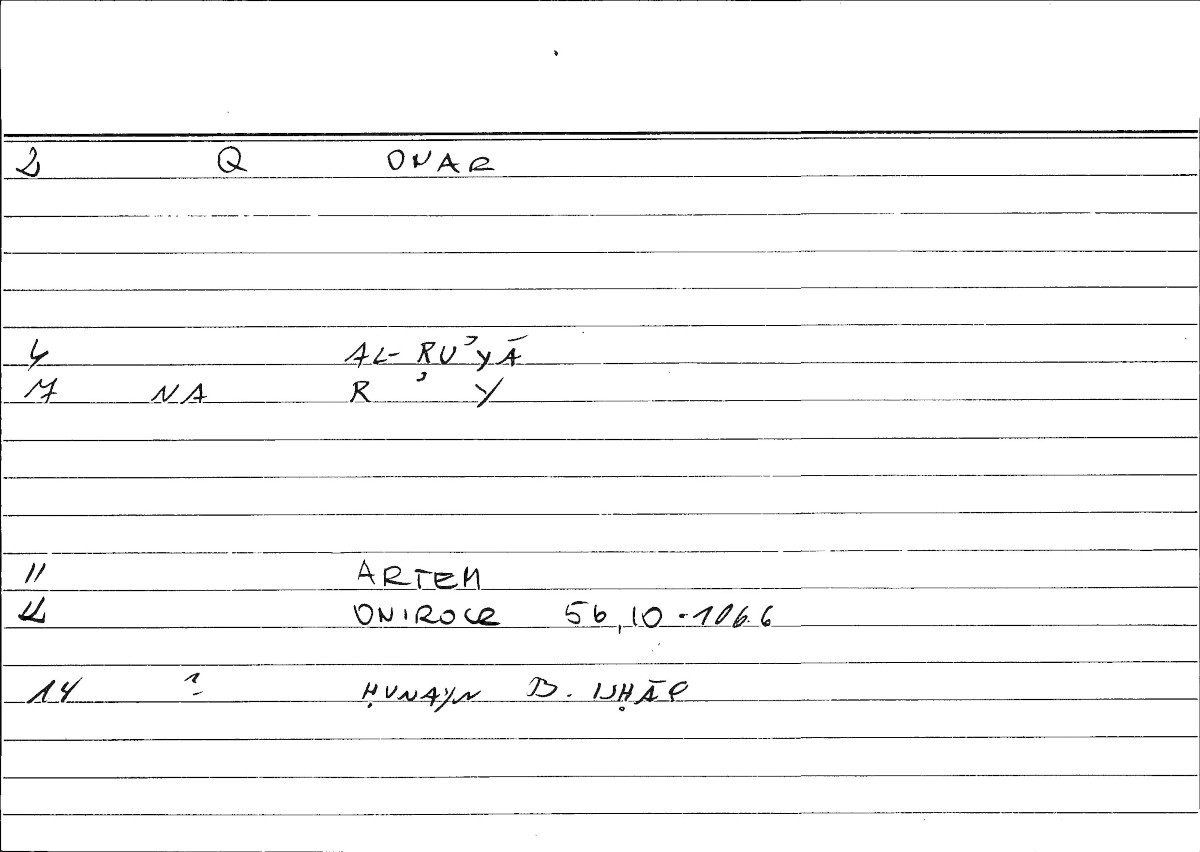 2 Q ONAR
4 AL-RUʾYĀ
7 NA R ʾ Y
11 ARTEM
12 ONIROCR 56,10-106.6
14 ? ḤUNAYN B. ISḤĀQ